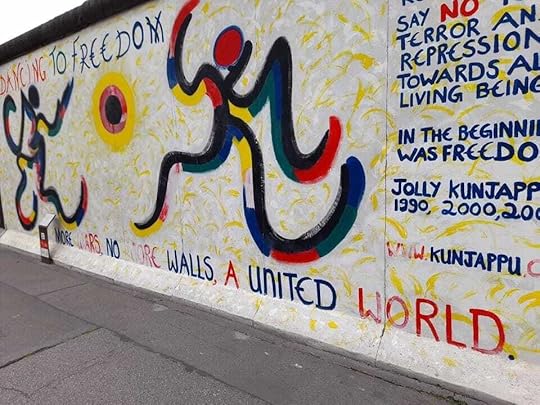 DANCING TO FREEDOM
SAY NO
TERROR AN
REPRESSION
TOWARDS AL
LIVING BEING
IN THE BEGINNI
WAS FREEDO
JOLLY KUNJAPP
1990, 2000, 200
WWW.KUNJAPPU.
MORE WARS. NO MORE WALLS. A UNITED WORLD.